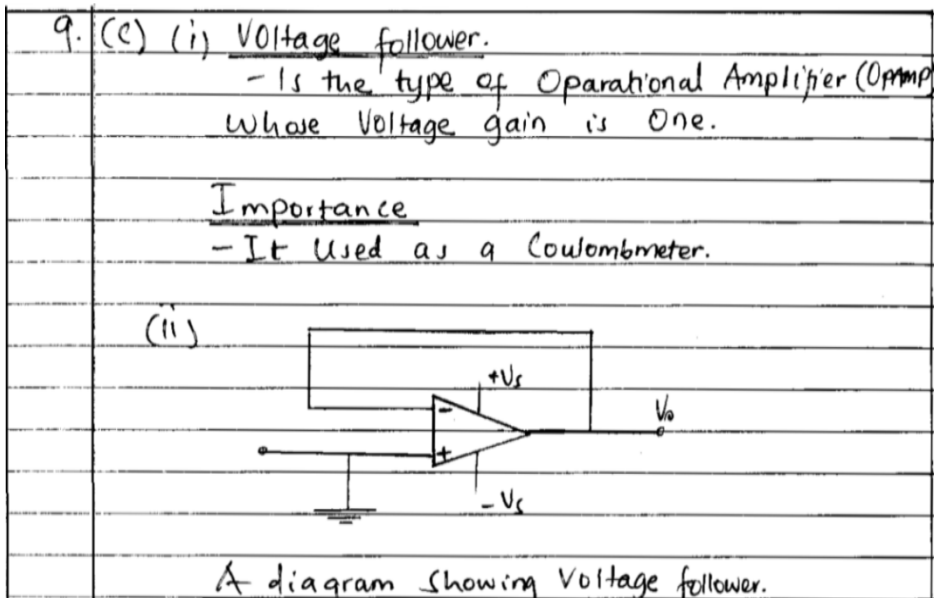 9. (c) (i) Voltage follower.
- Is the type of Oparational Amplifier (OpAMP)
Whose Voltage gain is One.
Importance
- It Used as a Coulombmeter.
(ii)
+Vs
-
Vo
+
- Vs
A diagram showing Voltage follower.